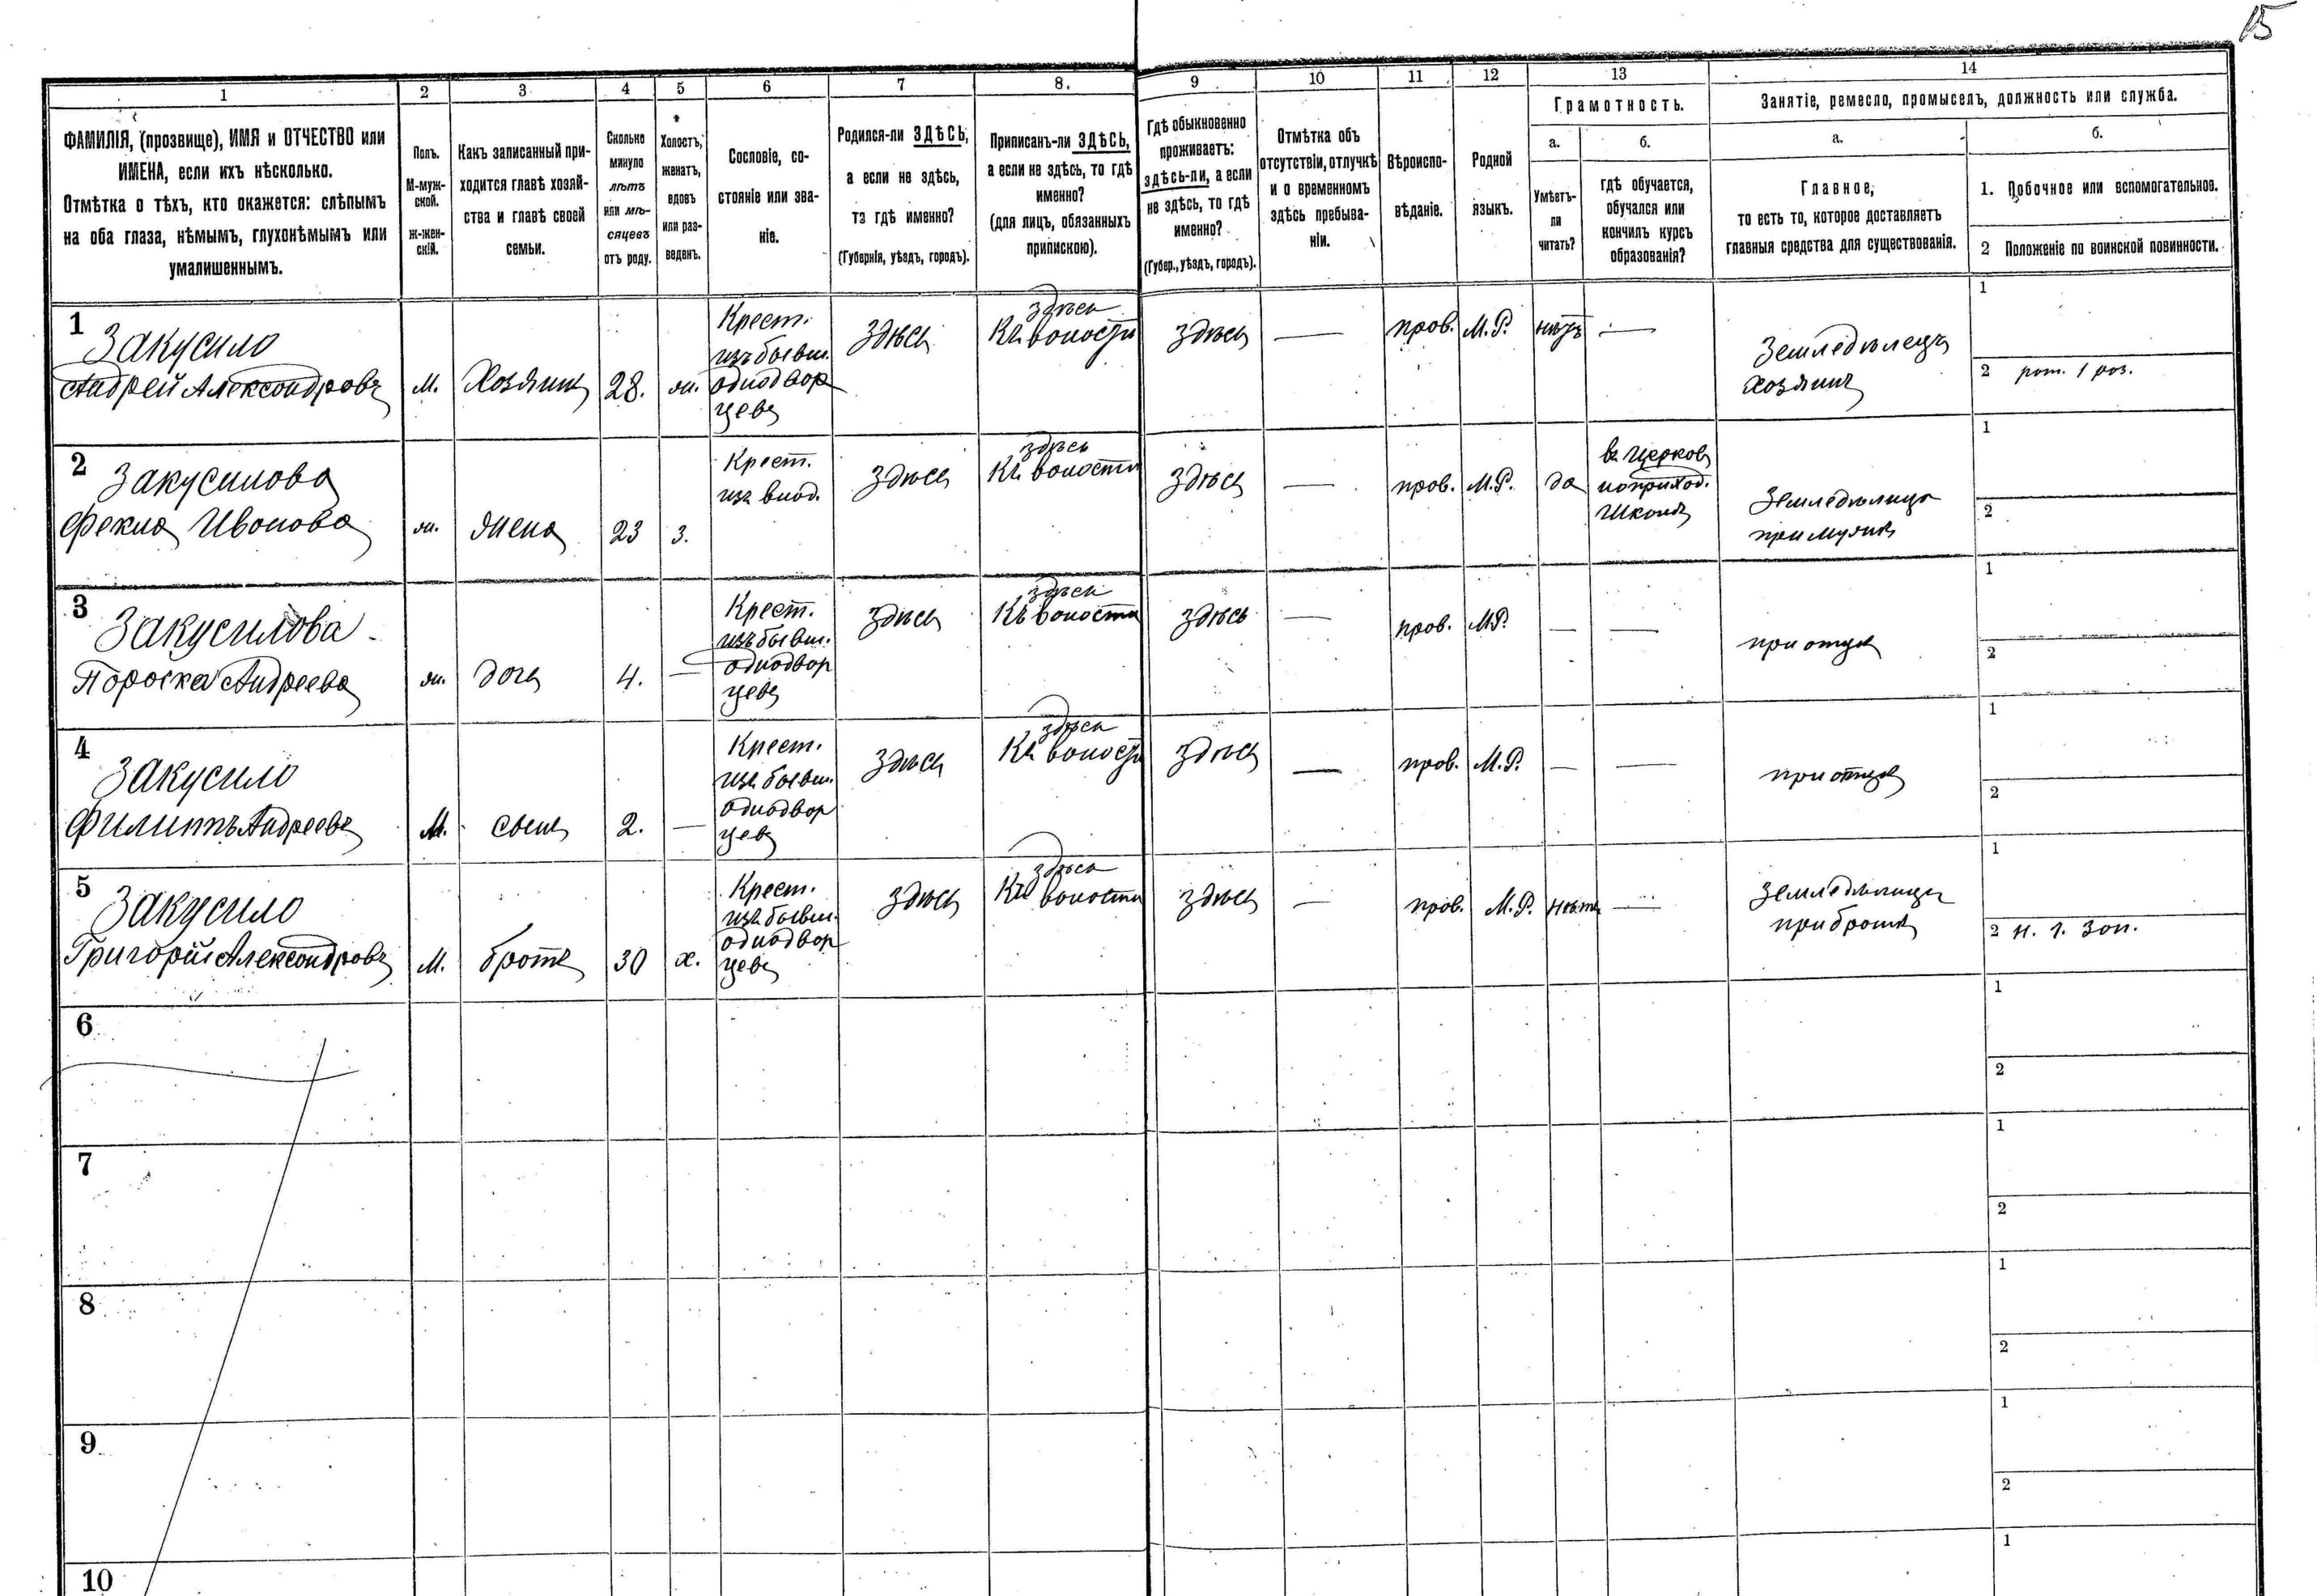 15
1
2
3
4
5
6
7
8.
9
10
11
12
13
14
ФАМИЛІЯ, (прозвище), ИМЯ и ОТЧЕСТВО или
ИМЕНА, если ихъ нѣсколько.
Отмѣтка о тѣхъ, кто окажется: слѣпымъ
на оба глаза, нѣмымъ, глухонѣмымъ или
умалишеннымъ.
Полъ.
М-муж-
ской.
ж-жен-
скій.
Какъ записанный при-
ходится главѣ хозяй-
ства и главѣ своей
семьи.
Сколько
минуло
лѣтъ
или мѣ-
сяцевъ
отъ роду.
Холостъ,
женатъ,
вдовъ
или раз-
веденъ.
Сословіе, со-
стояніе или зва-
ніе.
Родился-ли ЗДѢСЬ,
а если не здѣсь,
то гдѣ именно?
(Губернія, уѣздъ, городъ).
Приписанъ-ли ЗДѢСЬ,
а если не здѣсь, то гдѣ
именно?
(для лицъ, обязанныхъ
припискою).
Гдѣ обыкновенно
проживаетъ:
здѣсь-ли, а если
не здѣсь, то гдѣ
именно?
(Губер., уѣздъ, городъ).
Отмѣтка объ
отсутствіи, отлучкѣ
и о временномъ
здѣсь пребыва-
ніи.
Вѣроиспо-
вѣданіе.
Родной
языкъ.
Грамотность.
а.
Умѣетъ-
ли
читать?
б.
гдѣ обучается,
обучался или
кончилъ курсъ
образованія?
Занятіе, ремесло, промыселъ, должность или служба.
а.
Главное,
то есть то, которое доставляетъ
главныя средства для существованія.
б.
1. Побочное или вспомогательное.
2 Положеніе по воинской повинности.
1
Закусило
Андрей Александровъ
М.
Хозяинъ
28.
ж.
Крест.
изъ бывш.
однодвор
цевъ
здѣсь
здѣсь
Къ волости
здѣсь
—
прав.
М.Р.
нѣтъ
—
Земледѣлецъ
хозяинъ
1
2 рат. 1 раз.
2
Закусилова
Фекла Иванова
ж.
жена
23
з.
Крест.
изъ влад.
здѣсь
здѣсь
Къ волости
здѣсь
—
прав.
М.Р.
да
въ церков
ноприход.
школѣ
Земледѣлица
при мужѣ
1
2
3
Закусилова
Параска Андреева
ж.
дочь
4.
—
Крест.
изъ бывш.
однодвор
цевъ
здѣсь
здѣсь
Къ волости
здѣсь
—
прав.
М.Р.
—
—
при отцѣ
1
2
4
Закусило
Филиппъ Андреевъ
М.
сынъ
2.
—
Крест.
изъ бывш.
однодвор
цевъ
здѣсь
здѣсь
Къ волости
здѣсь
—
прав.
М.Р.
—
—
при отцѣ
1
2
5
Закусило
Григорій Александровъ
М.
братъ
30
х.
Крест.
изъ бывш.
однодвор
цевъ
здѣсь
здѣсь
Къ волости
здѣсь
—
прав.
М.Р.
нѣтъ
—
при братѣ
1
2 зап.
6
1
2
7
1
2
8
1
2
9
1
2
10
1